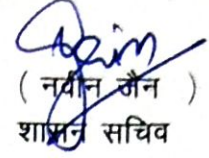 ( नवीन जैन )
शासन सचिव